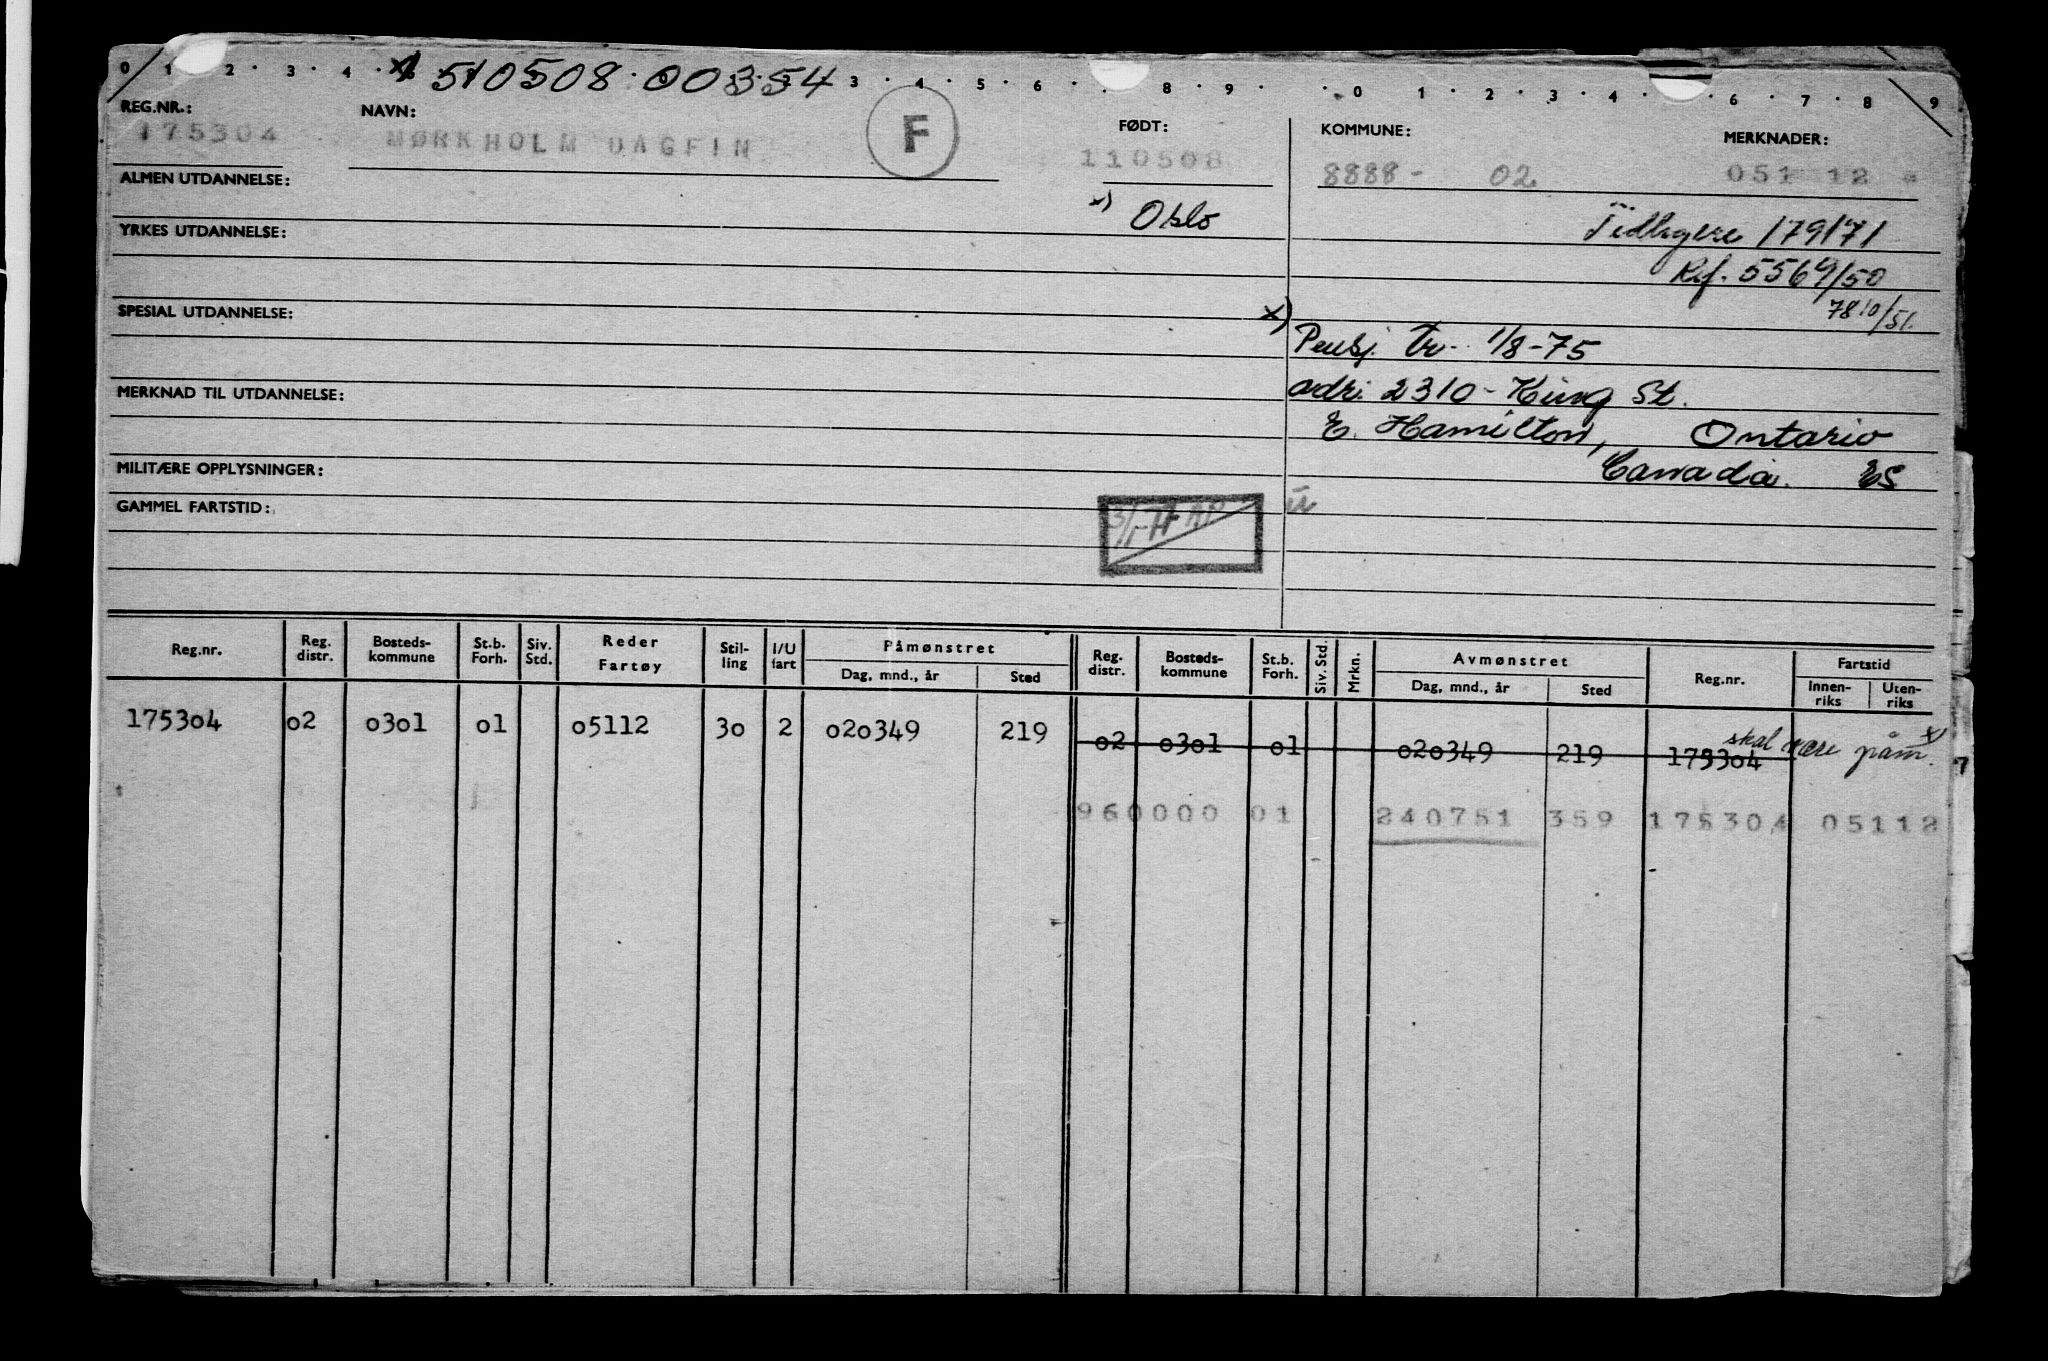 0 1 2 3 4 3 4 5 6 8 9 0 1 2 3 4 6 7 8 9
510508.00354
REG.NR.: NAVN: FØDT: KOMMUNE: MERKNADER:
175304 MØRKHOLM DAGFIN F 110508 8888- 02 051 12
ALMEN UTDANNELSE:
x) Oslo
Tidligere 179171
YRKES UTDANNELSE:
Ref. 5569/50
7810/51.
SPESIAL UTDANNELSE:
x) Pensj. tr. 1/8-75
adr: 2310 - King St.
MERKNAD TIL UTDANNELSE:
E. Hamilton, Ontario
Canada. ES
MILITÆRE OPPLYSNINGER:
GAMMEL FARTSTID:
Reg.nr. Reg. distr. Bosteds-kommune St.b. Forh. Siv. Std. Reder Fartøy Stil-ling I/U fart Påmønstret Dag, mnd., år Sted Reg. distr. Bosteds-kommune St.b. Forh. Siv. Std. Mrkn. Avmønstret Dag, mnd., år Sted Reg.nr. Fartstid Innen-riks Uten-riks
175304 02 0301 01 05112 30 2 020349 219 02 0301 01 020349 219 175304 skal være påm. x)
960000 01 240751 359 175304 05112